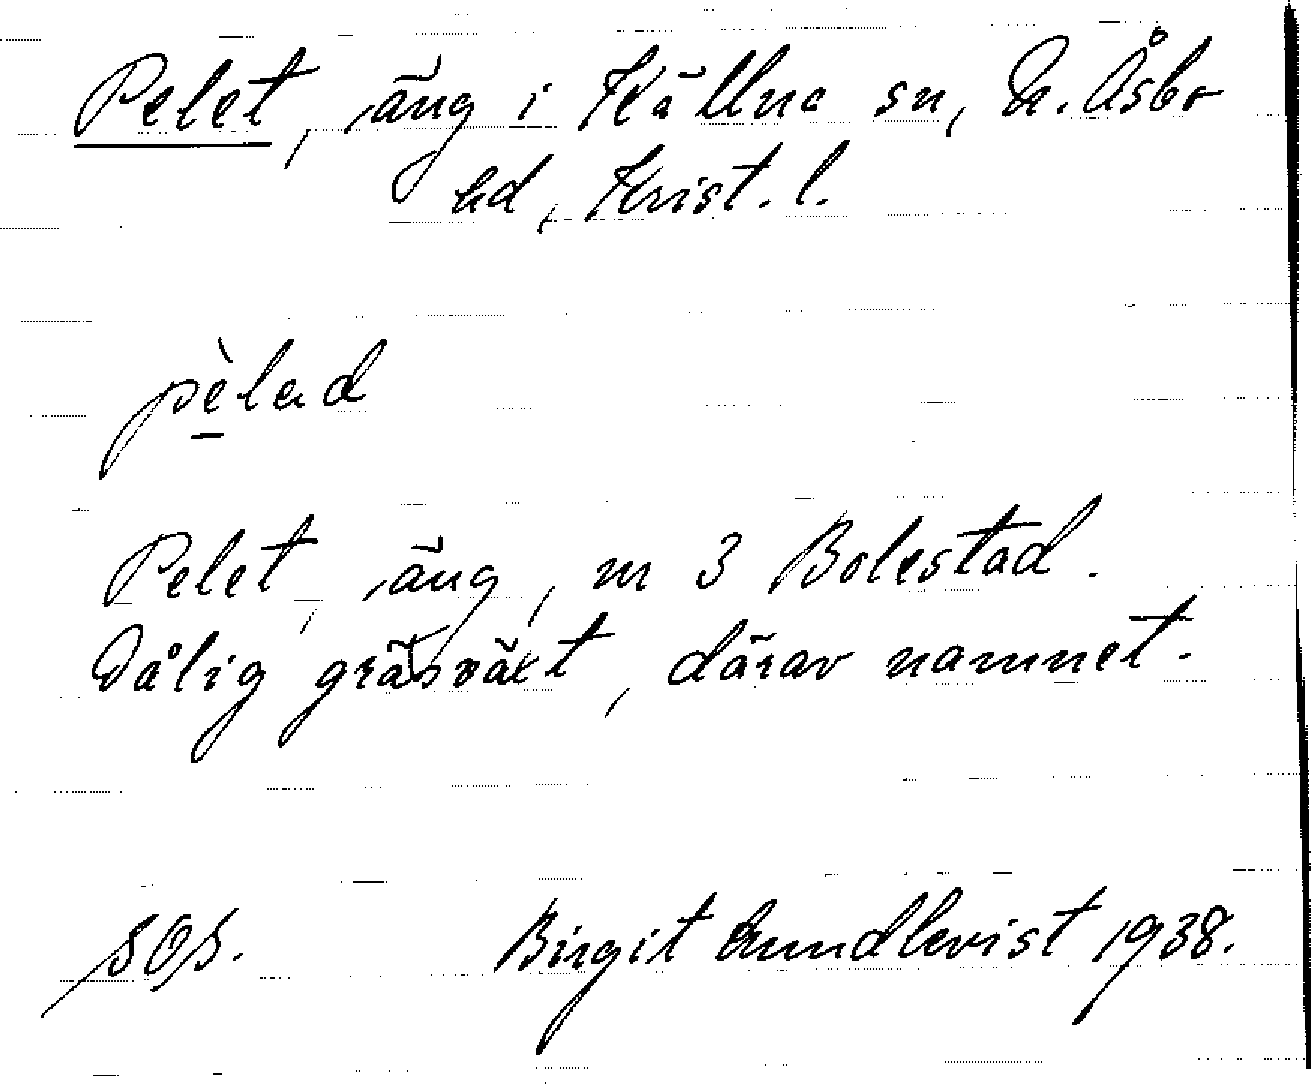 Pelet, äng i Källna sn, N. Åsbo
hd, Krist. l.
pèlad
Pelet, äng, nr 3 Bolestad.
Dålig gräsväxt, därav namnet.
Birgit Lundkvist 1938.